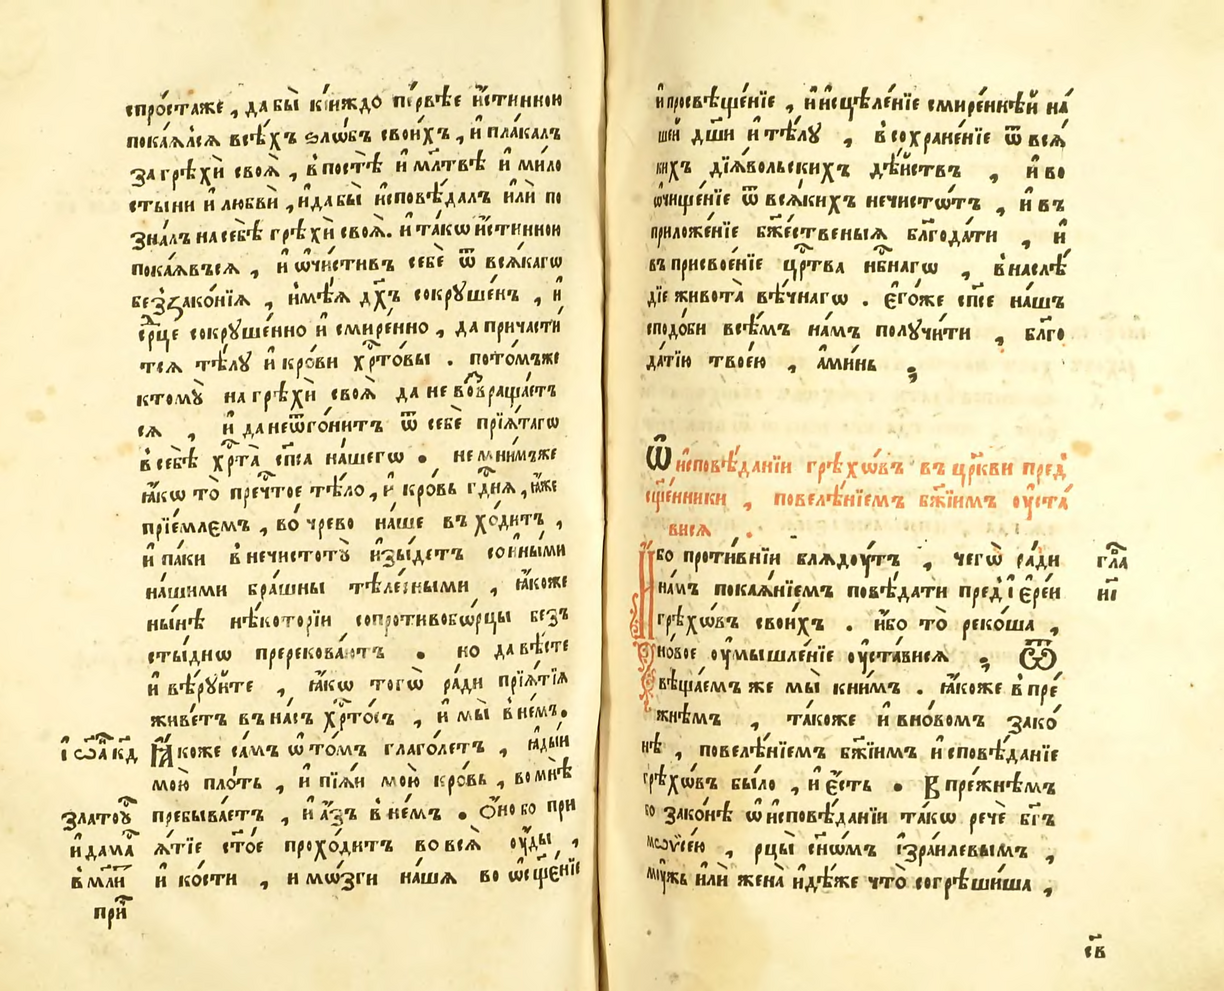 спро́стаже , дабы̀ кі́иждо пе́рвѣе и҆́стинною
пока́ѧлсѧ всѣ́хъ ѕлѡ́бъ свои́хъ , и҆ пла́калъ
за грѣхѝ своѧ̀ , в̾постѣ̀ и҆ мл҃твѣ и҆ мило
стыни и҆ любвѝ , и҆ дабы̀ и҆сповѣ́далъ и҆лѝ по
зна́лъ на себѣ̀ грѣхѝ своѧ̀ . и҆ та́кѡ и҆́стинною
пока́ѧвъсѧ , и҆ ѡ҆чи́стивъ себѐ ѿ всѧ́кагѡ
без̾зако́нїѧ , и҆мѣ́ѧ дх҃ъ сокрꙋше́нъ , и҆
ср҃це сокрꙋше́нно и҆ смире́нно , да причасти́
тсѧ тѣ́лꙋ и҆ кро́ви хрⷭ҇то́вы . пото́мъже
ктомꙋ̀ на грѣхѝ своѧ̀ да не во́звраща́етъ
сѧ , и҆ да не ѿго́нитъ ѿ себѐ прїѧ́тагѡ
в̾ себѣ̀ хрⷭ҇та̀ сп҃са на́шегѡ . не мни́мъже
ꙗ҆́кѡ то̀ преч҃тое тѣ́ло , и҆ кро́вь гдⷭ҇нѧ , ꙗ҆́же
прїе́млаемъ , во́ чрево на́ше въ хо́дитъ ,
и҆ па́ки в̾ нечистотꙋ̀ и҆зы́детъ со и҆ны́ми
на́шими бра́шны тѣле́сными , ꙗ҆́коже
ны́нѣ нѣ́которїи сопротивобо́рцы безъ
сты́днѡ пререкова́ютъ . но да вѣ́сте
и҆ вѣ́рꙋйте , ꙗ҆́кѡ тогѡ̀ ра́ди прїѧ́тїѧ
живе́тъ въ на́съ хрⷭ҇то́съ , и҆ мы̀ в̾ не́мъ .
і҆ѡа҃ кд ꙗ҆́коже са́мъ ѡ҆ то́мъ глаго́летъ , ꙗ҆ды́и
мою̀ пло́ть , и҆ пїѧ́и мою̀ кро́вь , во мнѣ̀
златоꙋ пребыва́етъ , и҆ а҆́зъ в̾ не́мъ . ѻ҆́но бо при
и҆ дама ѧ́тїе ст҃ое прохо́дитъ во всѧ̀ ᲂу҆́ды ,
в̾ мл҃и и҆ ко́сти , и҆ мѡ́зги на́шѧ во ѡ҆сщ҃е́нїе
при
и҆ просвѣще́нїе , и҆ и҆сцѣле́нїе смире́ннѣй на́
шей дш҃и и҆ тѣ́лꙋ , в̾ сохране́нїе ѿ всѧ́
кихъ дїѧ́вольскихъ дѣ́йствъ , и҆ во
ѡ҆чище́нїе ѿ всѧ́кихъ нечисто́тъ , и҆ въ
приложе́нїе бжⷭ҇е́ственыѧ благода́ти , и҆
въ присвое́нїе црⷭ҇тва нбⷭ҇нагѡ , в̾ наслѣ́
дїе живота̀ вѣ́чнагѡ . є҆го́же сп҃се на́шъ
сподо́би всѣ́мъ на́мъ полꙋчи́ти , благо
да́тїю твое́ю , а҆ми́нь .
Ѡ҆ и҆сповѣ́данїи грѣхѡ́въ въ цр҃кви пред̾
сщ҃е́нники , повелѣ́нїемъ бж҃їимъ ᲂу҆ста́
висѧ .
Ибо проти́внїи блѧдꙋ́тъ , чегѡ̀ ра́ди гла
на́мъ покаѧ́нїемъ повѣ́дати пред̾ і҆ере́и нi
грѣхѡ́въ свои́хъ . и҆́бо то̀ реко́ша ,
но́вое ᲂу҆мышле́нїе ᲂу҆ста́висѧ ; Ѿ
вѣща́емъ же мы̀ к̾ ни́мъ . ꙗ҆́коже в̾ пре́
жнѣмъ , та́коже и҆ в̾ но́вомъ зако́
нѣ , повелѣ́нїемъ бж҃їимъ и҆сповѣ́данїе
грѣхѡ́въ бы́ло , и҆ є҆́сть . В̾ пре́жнѣмъ
бо зако́нѣ ѡ҆ и҆сповѣ́данїи та́кѡ речѐ бг҃ъ
мѡѷсе́ю , рцы̀ сн҃ѡ́мъ і҆зра́илевымъ ,
мꙋ́жь и҆лѝ жена̀ и҆дѣ́же что̀ согрѣши́ша ,
св҃